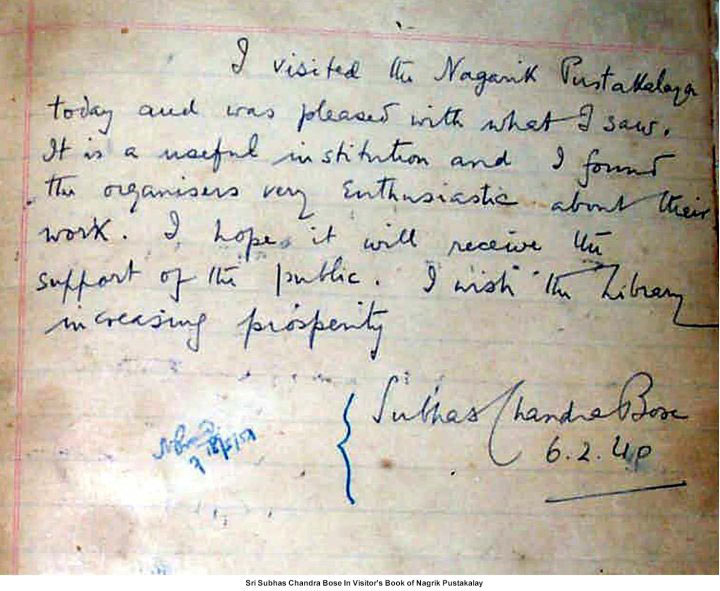 I visited the Nagarik Pustakalaya
today and was pleased with what I saw.
It is a useful institution and I found
the organisers very Enthusiastic about their
work. I hope it will receive the
support of the public. I wish the Library
increasing prosperity
Subhas Chandra Bose
6.2.40
Sri Subhas Chandra Bose In Visitor's Book of Nagrik Pustakalay